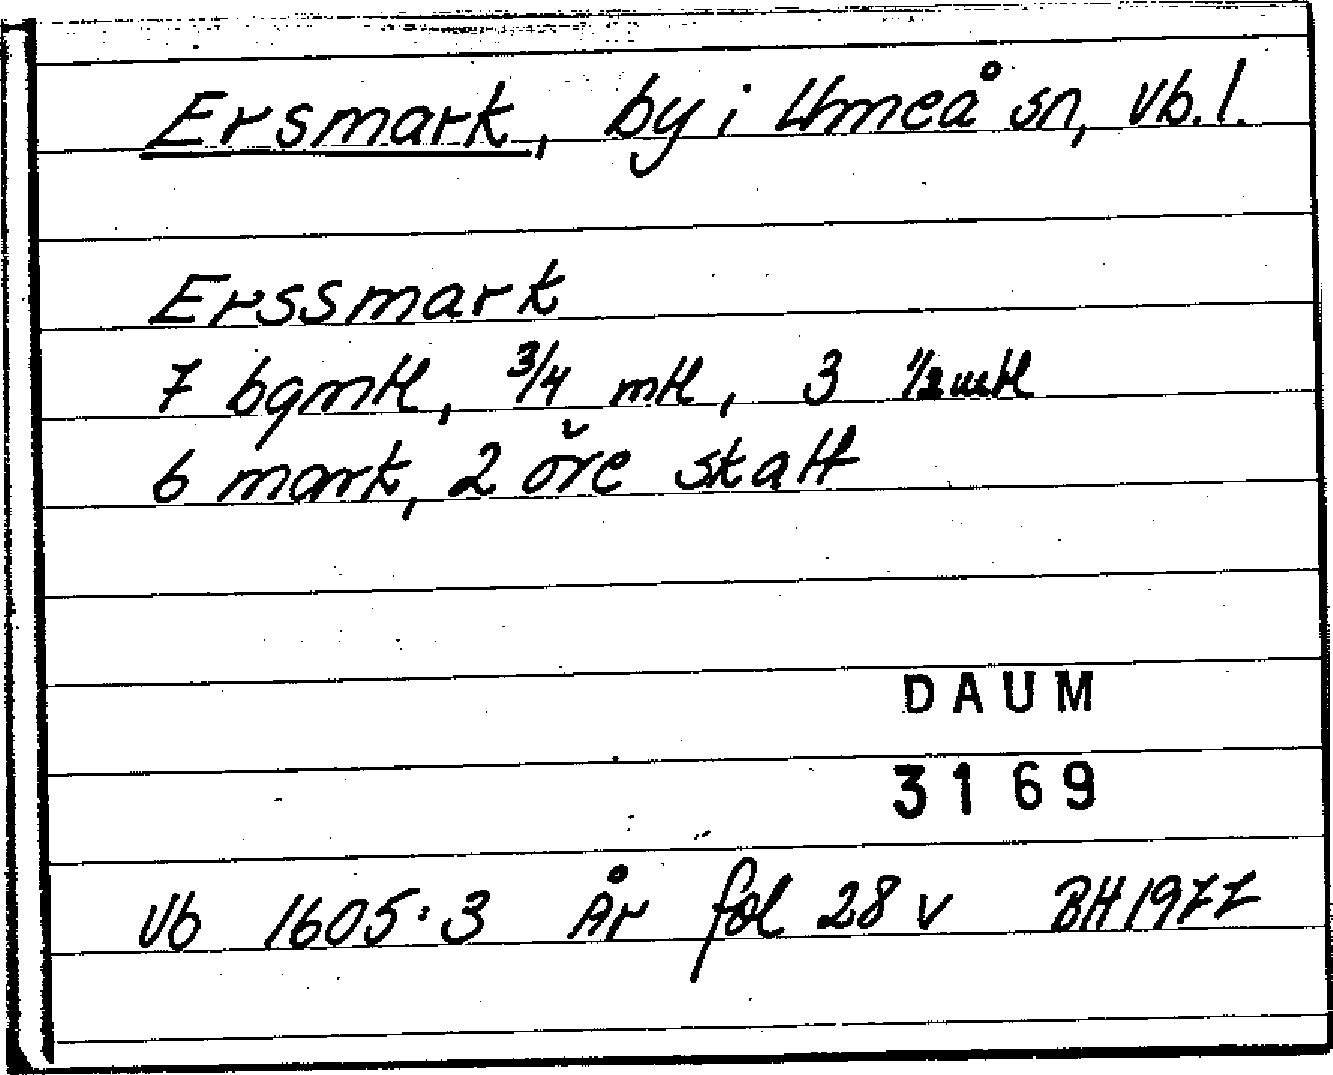 Ersmark, by i Umeå sn, Vb. l.
Erssmark
7 bgmtl, 3/4 mtl, 3 1/2 mtl
6 mark, 2 öre skatt
DAUM
3169
Vb 1605:3 År fol 28 v BH 1977